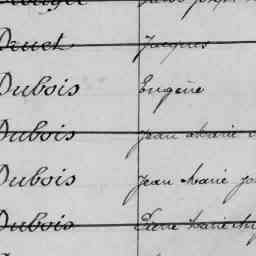 Druet Jacques
Dubois Eugène
Dubois Jean Marie
Dubois Jean Marie
Dubois Marie